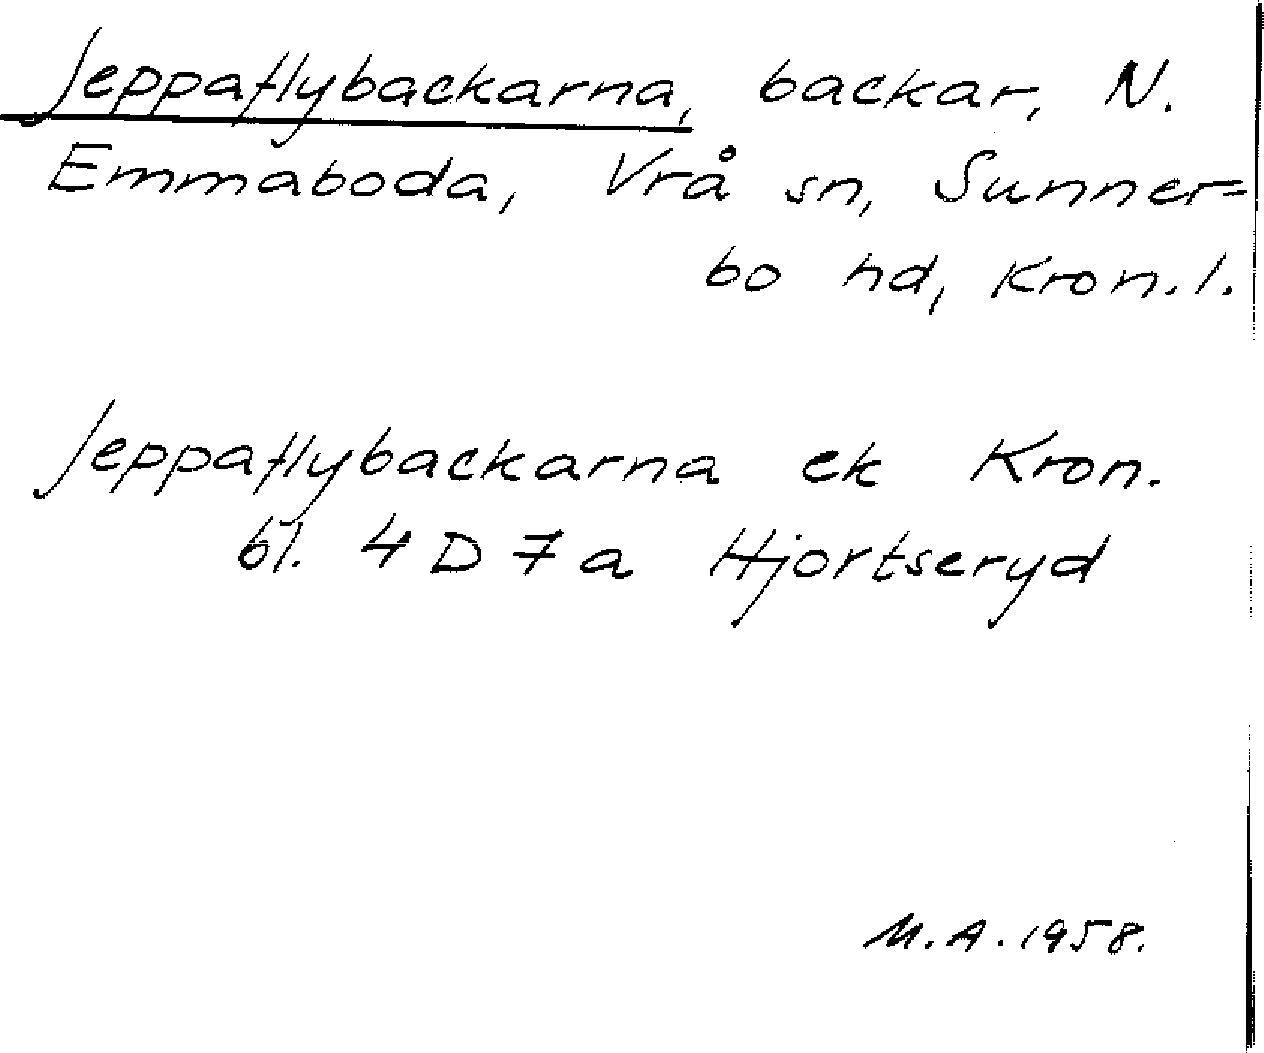 Jeppaflybackarna, backar, N.
Emmaboda, Vrå sn, Sunner=
bo hd, Kron. l.
Jeppaflybackarna ek Kron.
bl. 4 D 7 a Hjortseryd
M. A. 1958.